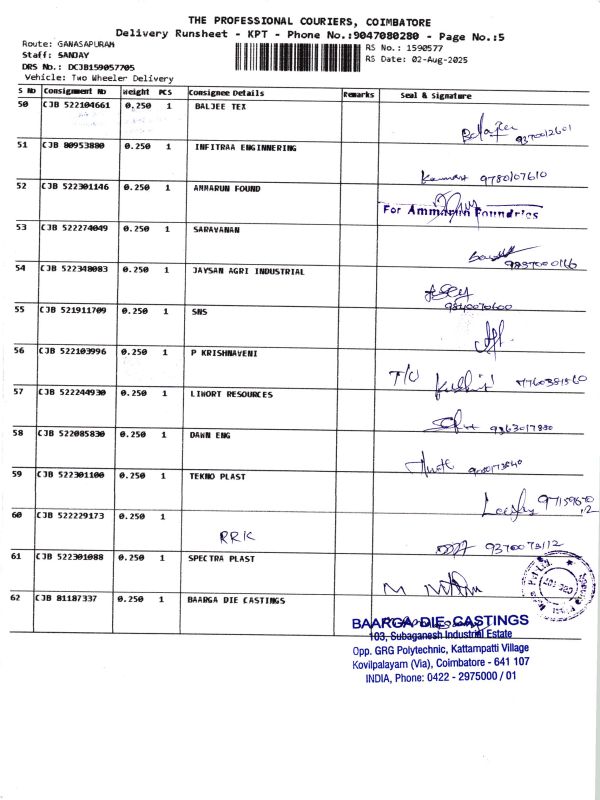 THE PROFESSIONAL COURIERS, COIMBATORE
Delivery Runsheet - KPT - Phone No.:9047080280 - Page No.:5
Route: GANASAPURAM
RS No.: 1590577
Staff: SANJAY
RS Date: 02-Aug-2025
DRS No.: DCJB159057705
Vehicle: Two Wheeler Delivery
S No Consignment No Weight PCS Consignee Details Remarks Seal & Signature
50 CJB 522104661 0.250 1 BALJEE TEX
9370012601
51 CJB 80953880 0.250 1 INFITRAA ENGINNERING
9780107610
52 CJB 522301146 0.250 1 AMMARUN FOUND
For Ammarun Foundries
53 CJB 522274049 0.250 1 SARAVANAN
54 CJB 522348083 0.250 1 JAYSAN AGRI INDUSTRIAL
9840070600
55 CJB 521911709 0.250 1 SNS
56 CJB 522103996 0.250 1 P KRISHNAVENI
57 CJB 522244930 0.250 1 LIHORT RESOURCES
58 CJB 522085830 0.250 1 DAWN ENG
59 CJB 522301100 0.250 1 TEKNO PLAST
60 CJB 522229173 0.250 1
RRK
9370073112
61 CJB 522301088 0.250 1 SPECTRA PLAST
62 CJB 81187337 0.250 1 BAARGA DIE CASTINGS
BAARGA DIE CASTINGS
103, Subaganesh Industrial Estate
Opp. GRG Polytechnic, Kattampatti Village
Kovilpalayam (Via), Coimbatore - 641 107
INDIA, Phone: 0422 - 2975000 / 01